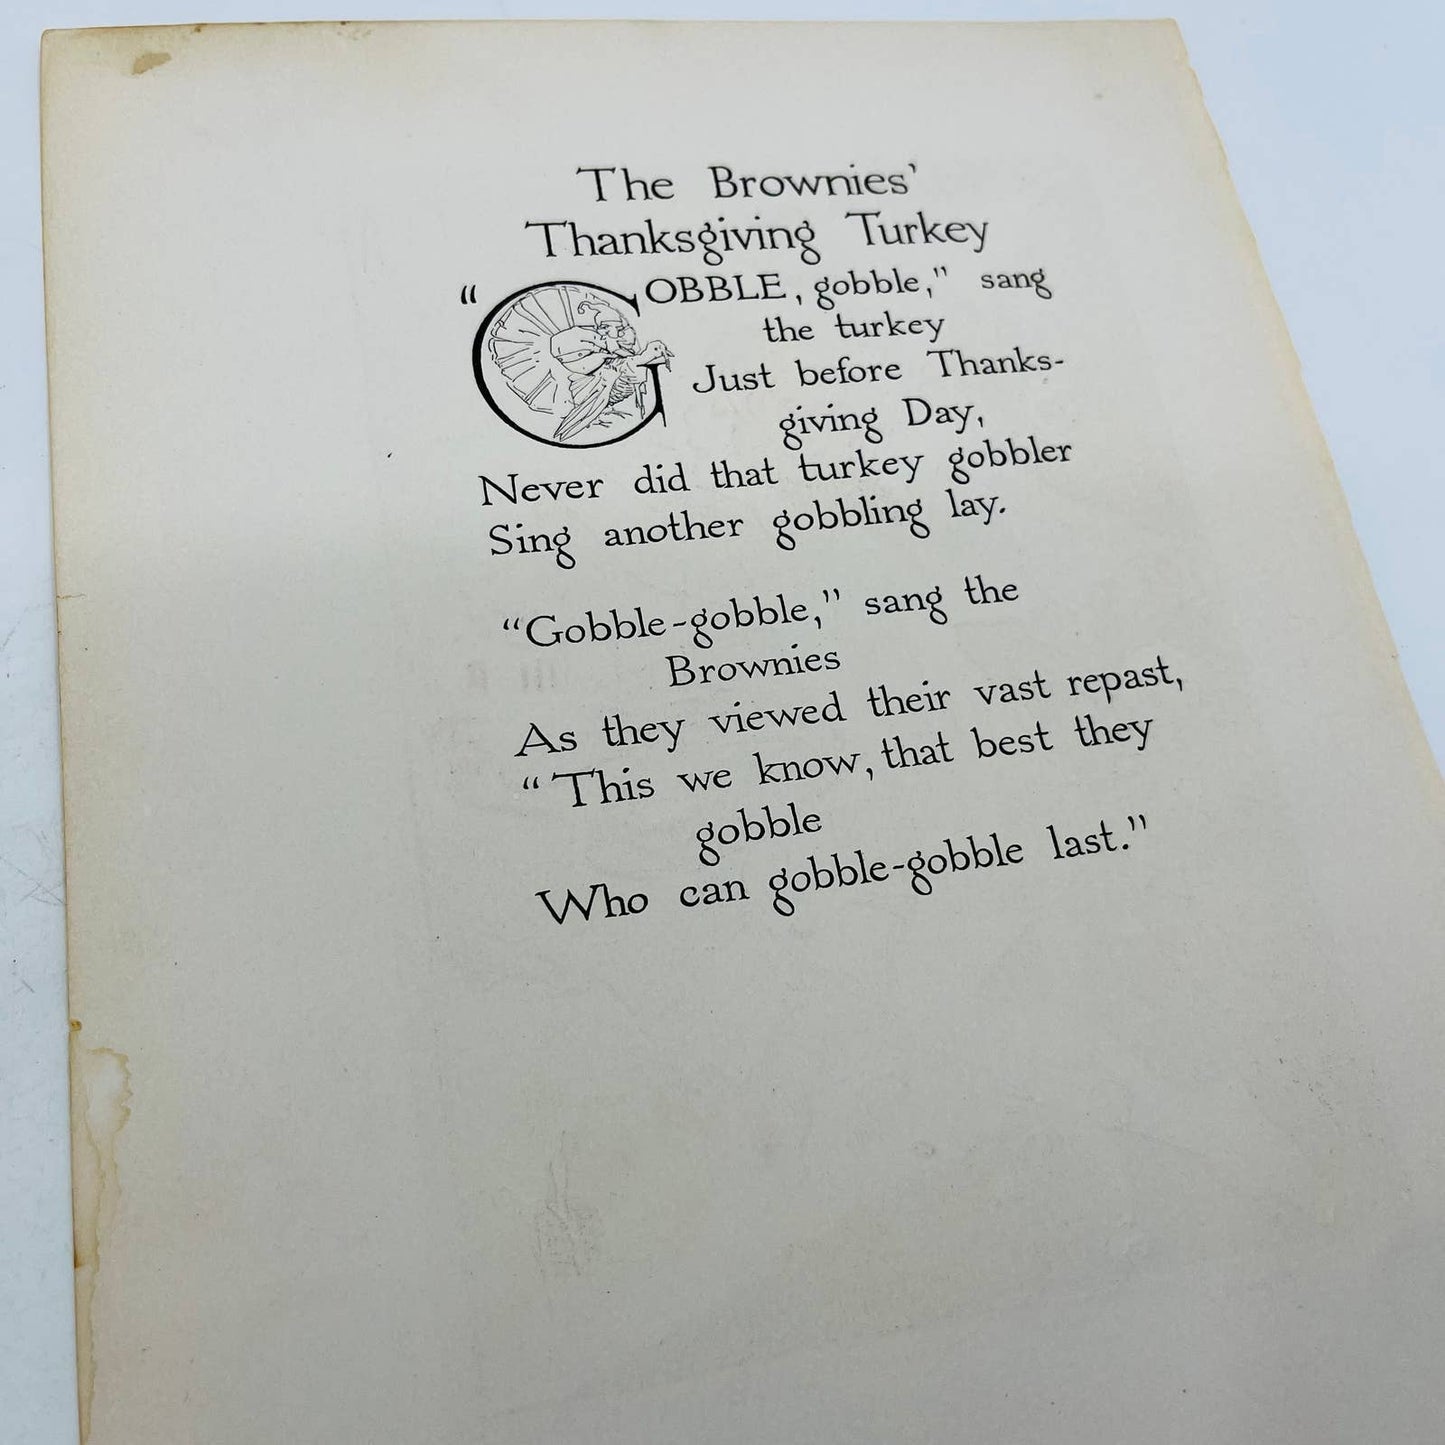 The Brownies’
Thanksgiving Turkey
“GOBBLE, gobble,” sang
the turkey
Just before Thanks-
giving Day,
Never did that turkey gobbler
Sing another gobbling lay.
“Gobble-gobble,” sang the
Brownies
As they viewed their vast repast,
“This we know, that best they
gobble
Who can gobble-gobble last.”